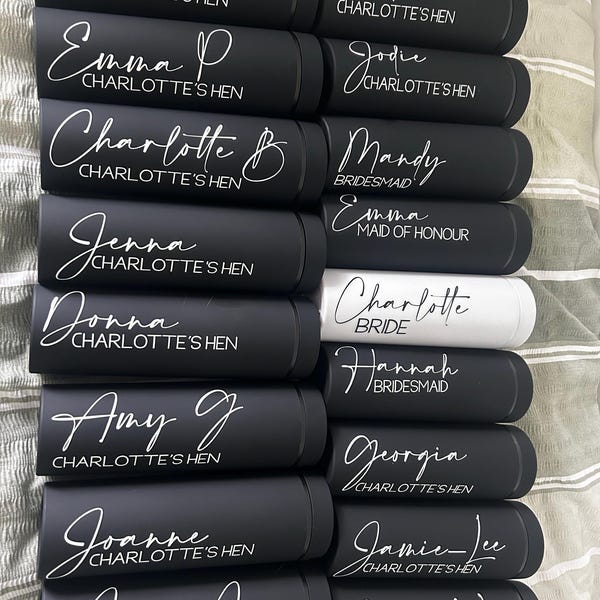 CHARLOTTE'S HEN
Emma P
CHARLOTTE'S HEN
Charlotte B
CHARLOTTE'S HEN
Jenna
CHARLOTTE'S HEN
Donna
CHARLOTTE'S HEN
Amy G
CHARLOTTE'S HEN
Joanne
CHARLOTTE'S HEN
CHARLOTTE'S HEN
Jodie
CHARLOTTE'S HEN
Mandy
BRIDESMAID
Emma
MAID OF HONOUR
Charlotte
BRIDE
Hannah
BRIDESMAID
Georgia
CHARLOTTE'S HEN
Jamie-Lee
CHARLOTTE'S HEN